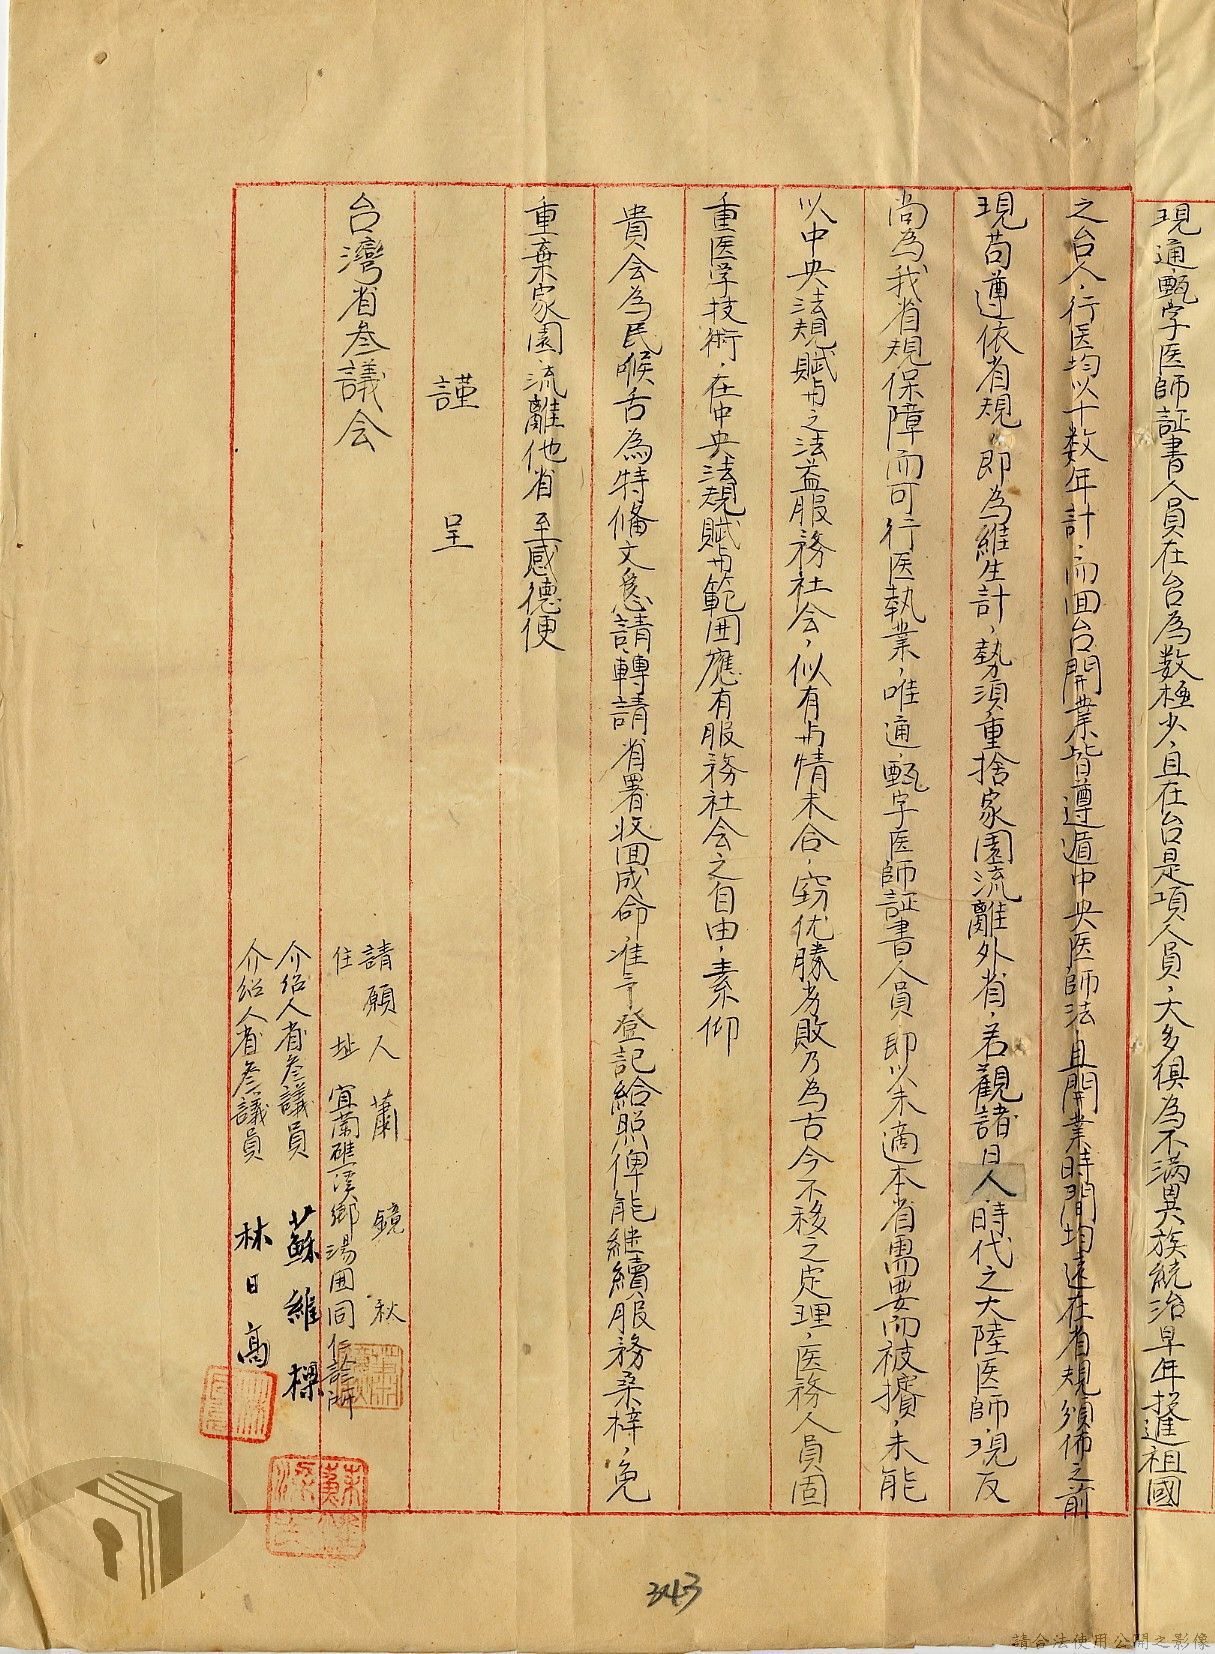 現通甄字医師証書人員在台為数極少，且在台是項人員，大多俱為不満異族統治早年投進祖國
之台人，行医均以十数年計，而回台開業皆遵循中央医師法且開業時間均遠在省規頒佈之前
現苟遵依省規，即為維生計，勢須重捨家園流離外省，若觀諸日人時代之大陸医師，現反
尚為我省規保障而可行医執業，唯通甄字医師証書人員即以未適本省需要而被擯，未能
以中央法規賦与之法益服務社会，似有与情未合，窃优勝劣敗乃為古今不移之定理，医務人員固
重医学技術，在中央法規賦与範囲應有服務社会之自由，素仰
貴会為民喉舌為特俻文急請轉請省署收回成命，准予登記給照俾能継續服務桑梓，免
重棄家園流離他省至感德便
謹呈
台灣省参議会
請願人 蕭鏡秋
住址 宜蘭礁溪鄉湯囲同仁診所
介紹人省参議員 蘇維樑
介紹人省参議員 林日高
343
請合法使用公開之影像